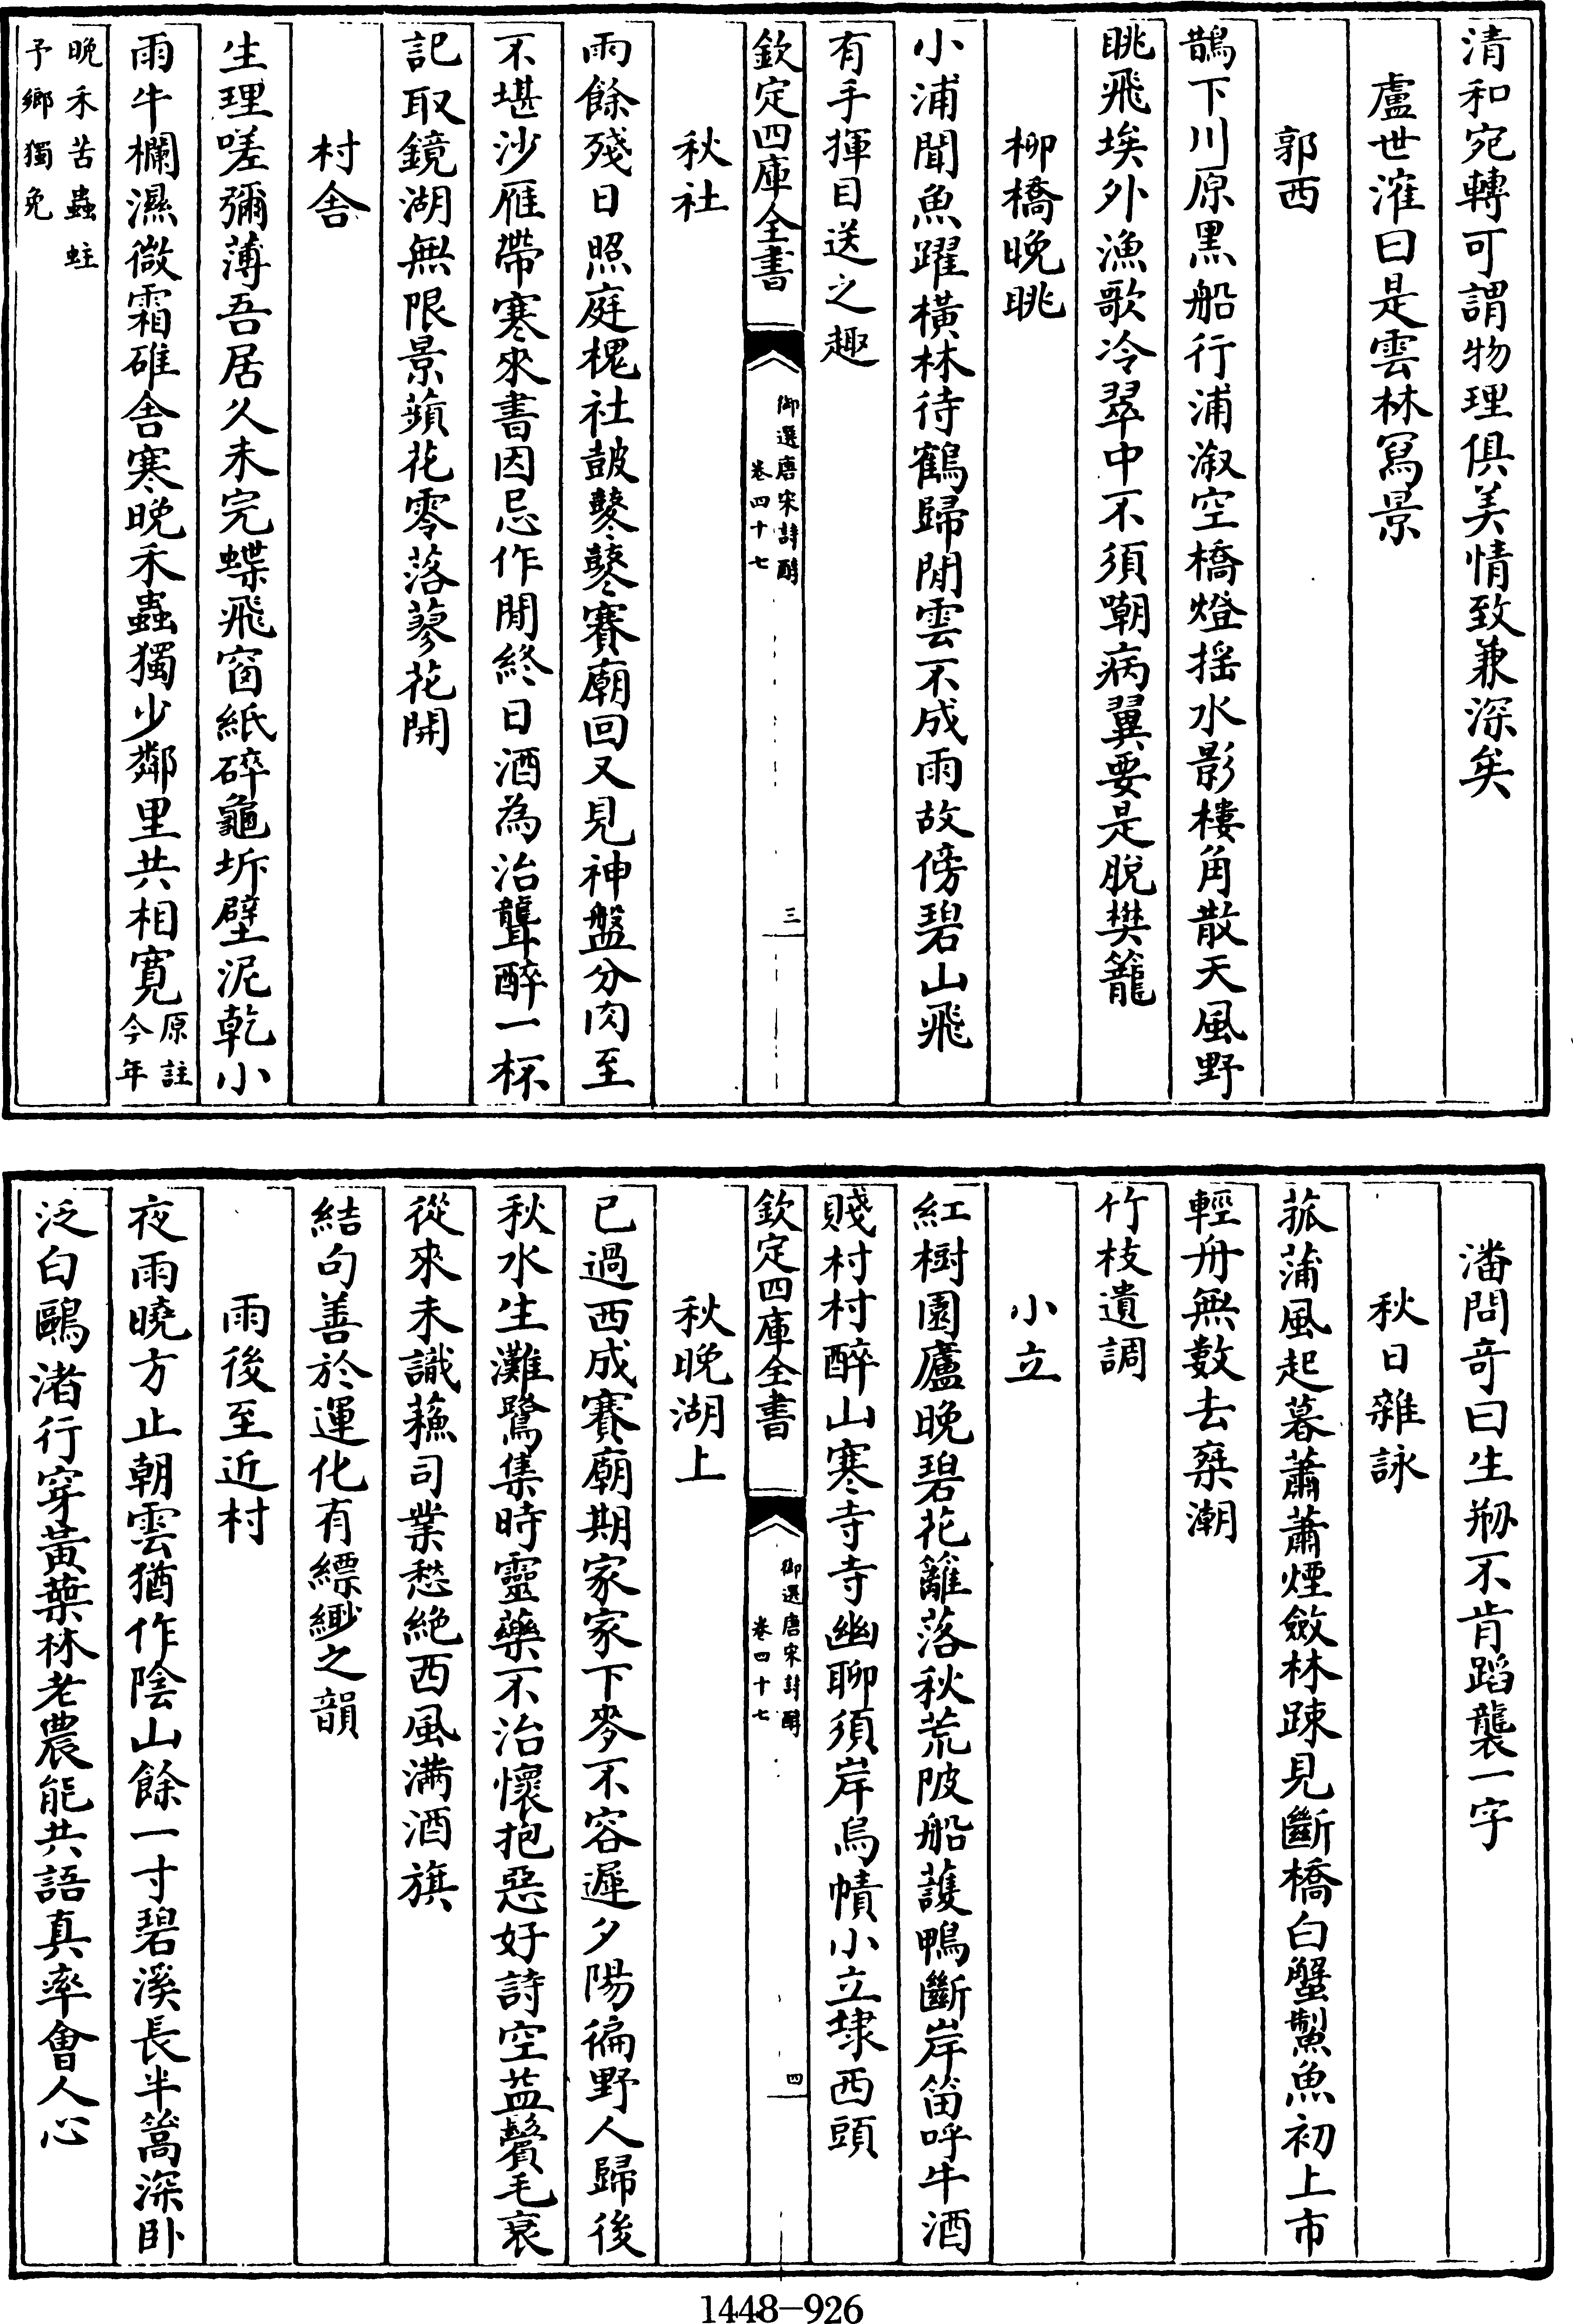 清和宛轉可謂物理俱美情致兼深矣
盧世㴶曰是雲林寫景
郭西
鵲下川原黑船行浦溆空橋燈揺水影樓角散天風野
眺飛埃外漁歌冷翠中不須嘲病翼要是脫樊籠
柳橋晚眺
小浦聞魚躍橫林待鶴歸閒雲不成雨故傍碧山飛
有手揮目送之趣
欽定四庫全書
御選唐宋詩醇
卷四十七
三
秋社
雨餘殘日照庭槐社鼓鼕鼕賽廟回又見神盤分肉至
不堪沙雁帶寒來書因忌作閒終日酒為治聾醉一杯
記取鏡湖無限景蘋花零落蓼花開
村舎
生理嗟彌薄吾居久未完蝶飛窗紙碎龜坼壁泥乾小
雨牛欄濕微霜碓舎寒晚禾蟲獨少鄰里共相寛原註
今年
晚禾苦蟲蛀
予鄉獨免
潘問竒曰生剏不肯蹈襲一字
秋日雜詠
菰蒲風起暮蕭蕭煙斂林踈見斷橋白蟹鮆魚初上市
輕舟無數去乗潮
竹枝遺調
小立
紅樹園廬晚碧花籬落秋荒陂船護鴨斷岸笛呼牛酒
賤村村醉山寒寺寺幽聊須岸烏幘小立埭西頭
欽定四庫全書
御選唐宋詩醇
卷四十七
四
秋晚湖上
已過西成賽廟期家家下麥不容遲夕陽徧野人歸後
秋水生灘鷺集時靈藥不治懷抱惡好詩空益鬢毛衰
從來未識蘓司業愁絶西風滿酒旗
結句善於運化有縹緲之韻
雨後至近村
夜雨曉方止朝雲猶作陰山餘一寸碧溪長半篙深卧
泛白鷗渚行穿黃葉林老農能共語真率會人心
1448-926